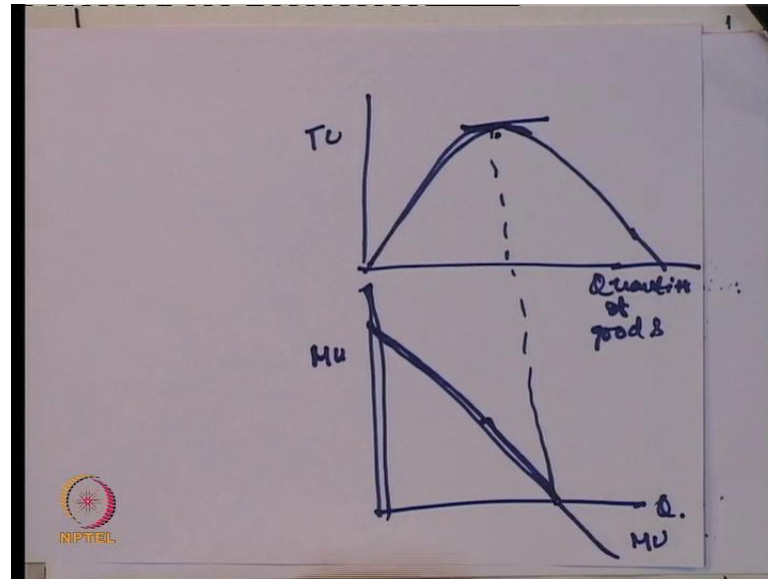 TU
Quantity
of
goods
MU
Q.
MU
NPTEL